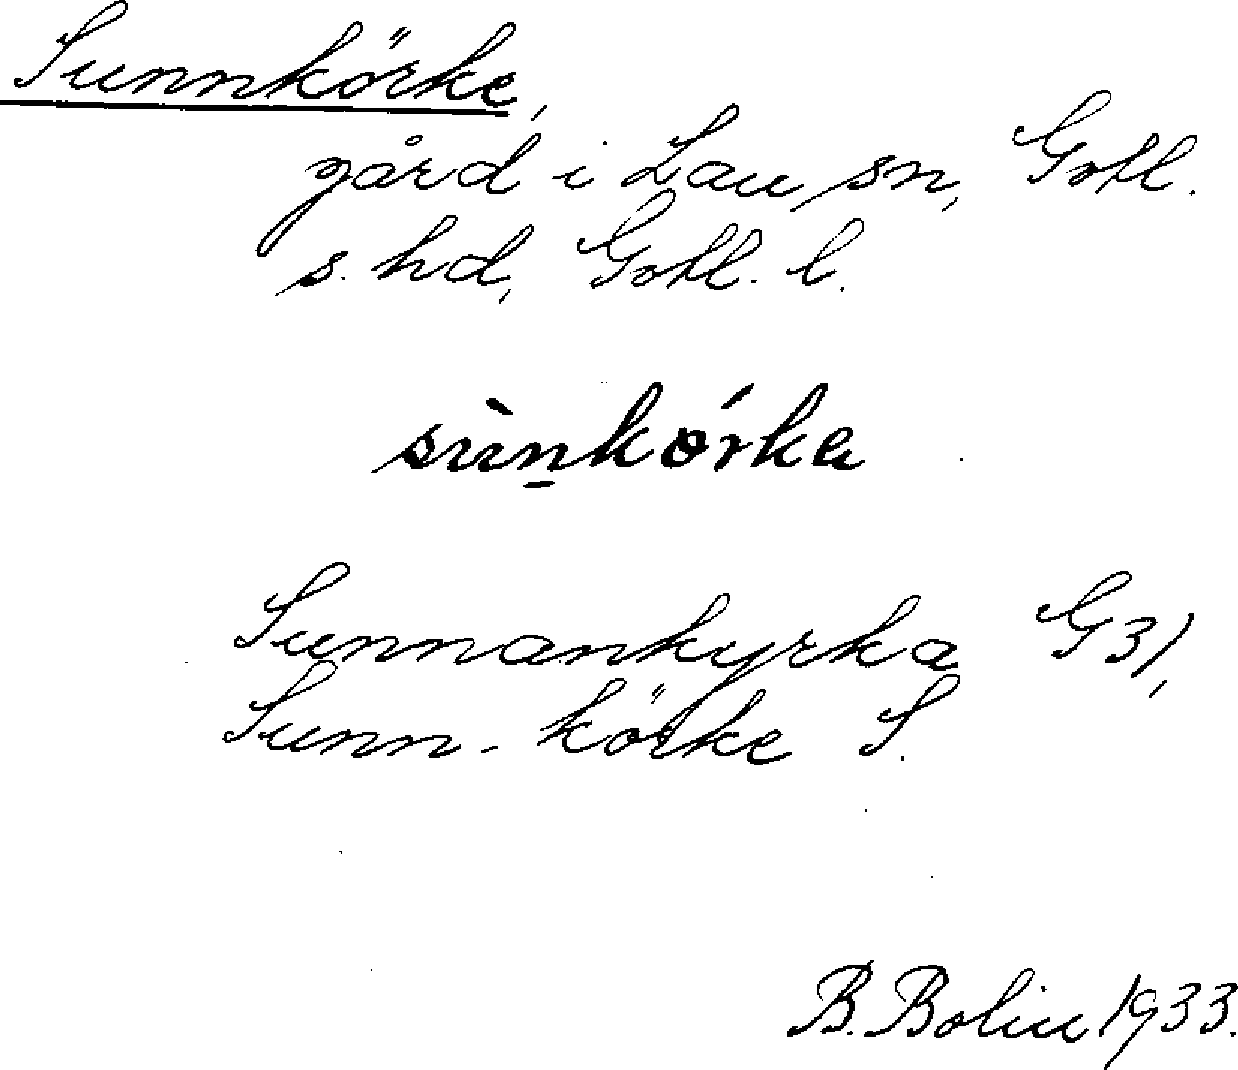 Sunnkörke,
gård i Lau sn, Gotl.
s. hd, Gotl. l.
sùn̠kórkɐ
Sunnankyrka G31,
Sunn-körke S.
B. Bolin 1933.